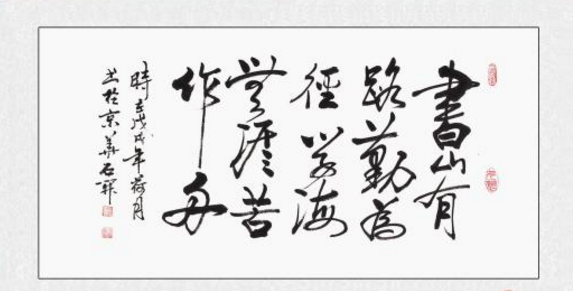 書山有
路勤為
徑学海
無涯苦
作舟
時在戊戌年荷月
书於京華石羅